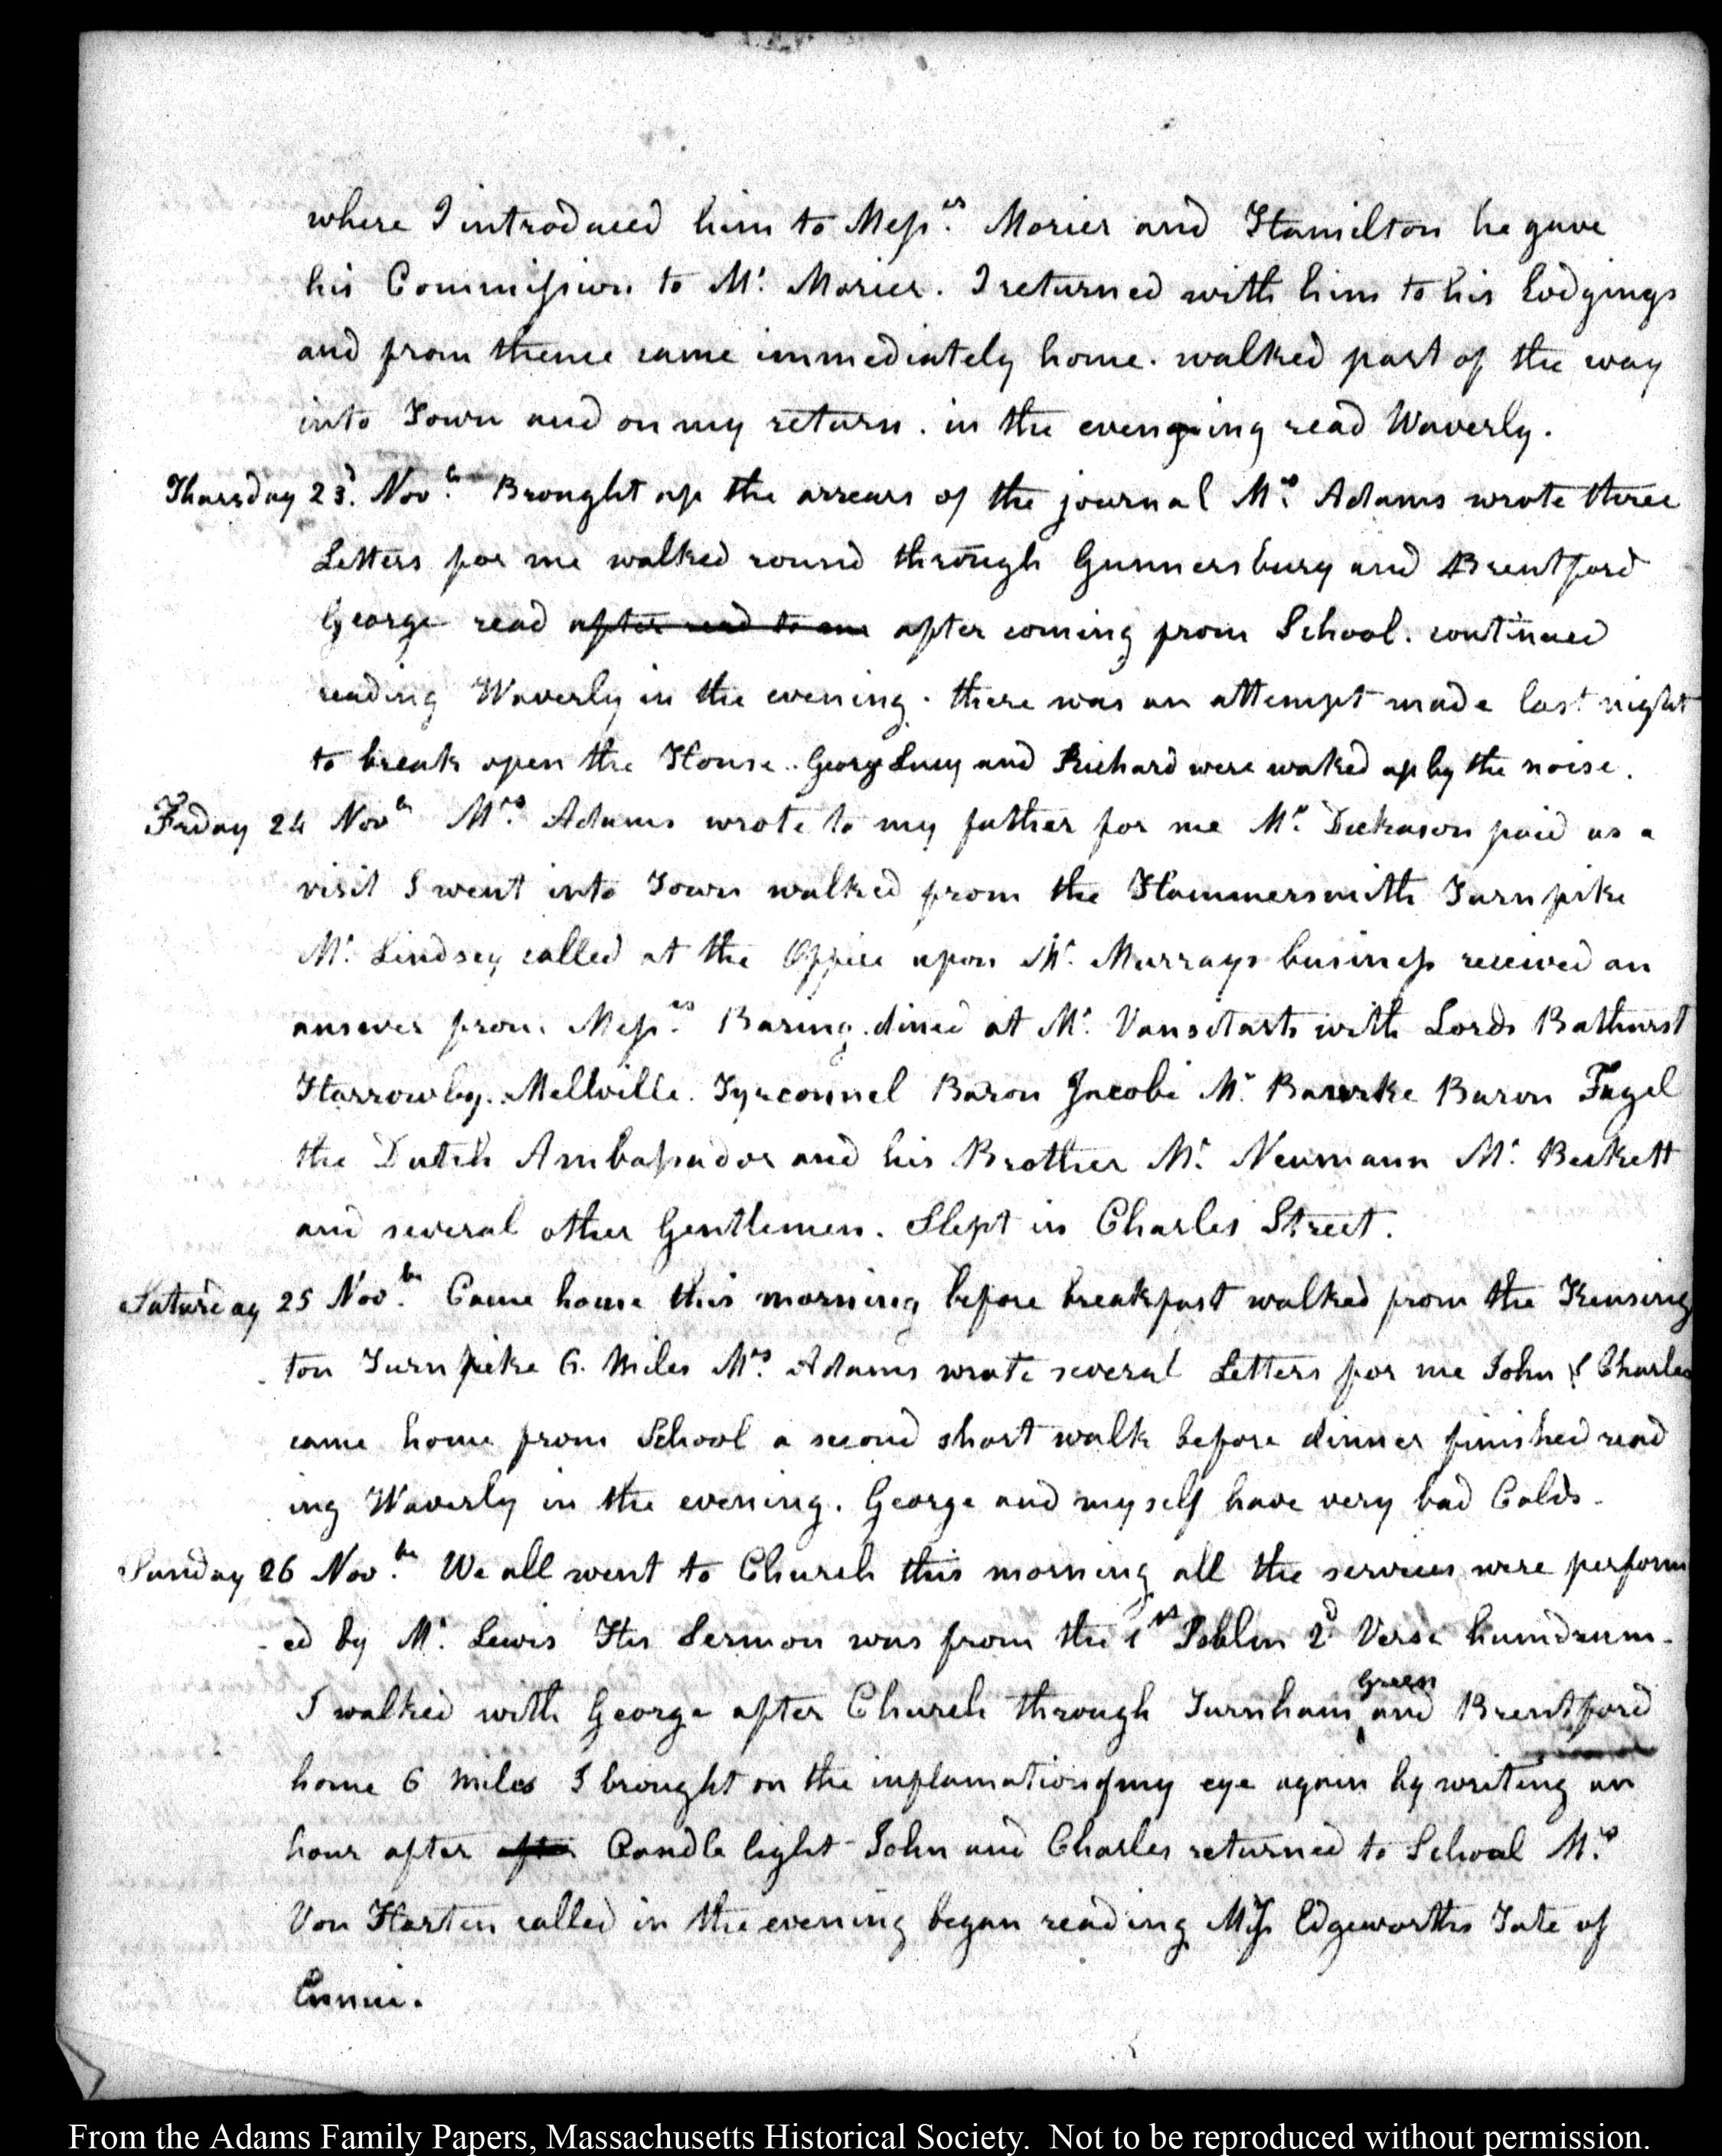 where I introduced him to Mess.rs Morier and Hamilton he gave
his Commission to Mr. Morier. I returned with him to his lodgings
and from thence came immediately home. walked part of the way
into Town and on my return. in the evening read Waverly.
Thursday 23d. Novbr. Brought up the arrears of the journal Mrs. Adams wrote three
Letters for me walked round through Gunnersbury and Brentford
George read after read to me after coming from School. continued
reading Waverly in the evening. there was an attempt made last night
to break open the House.. George Lucy and Richard were waked up by the noise.
Friday 24 Novbr Mrs. Adams wrote to my father for me Mr. Dickason paid us a
visit I went into Town walked from the Hammersmith Turnpike
Mr. Lindsey called at the Office upon Mr. Murrays business received an
answer from Mess.rs Baring. dined at Mr. Vansitarts with Lords Bathurst
Harrowby. Mellville. Tyrconnel Baron Jacobi Mr. Bourke Baron Fagel
the Dutch Ambassador and his Brother Mr. Neumann Mr. Beckett
and several other Gentlemen. Slept in Charles Street.
Saturday 25 Novbr. Came home this morning before breakfast walked from the Kensing
ton Turn pieke 6. Miles Mrs. Adams wrote several Letters for me John & Charles
came home from School a second short walk before dinner finished read
ing Waverly in the evening. George and myself have very bad Colds.
Sunday 26 Novbr. We all went to Church this morning all the services were perform
ed by Mr. Lewis His Sermon was from the 1st Psalm 2d Verse humdrum.
I walked with George after Church through Turnham Green and Brentford
home 6 miles I brought on the inflamation of my eye again by writing an
hour after after Candle light - John and Charles returned to School Mrs.
Von Harten called in the evening began reading Miss Edgeworths Tale of
Ennui.
From the Adams Family Papers, Massachusetts Historical Society. Not to be reproduced without permission.